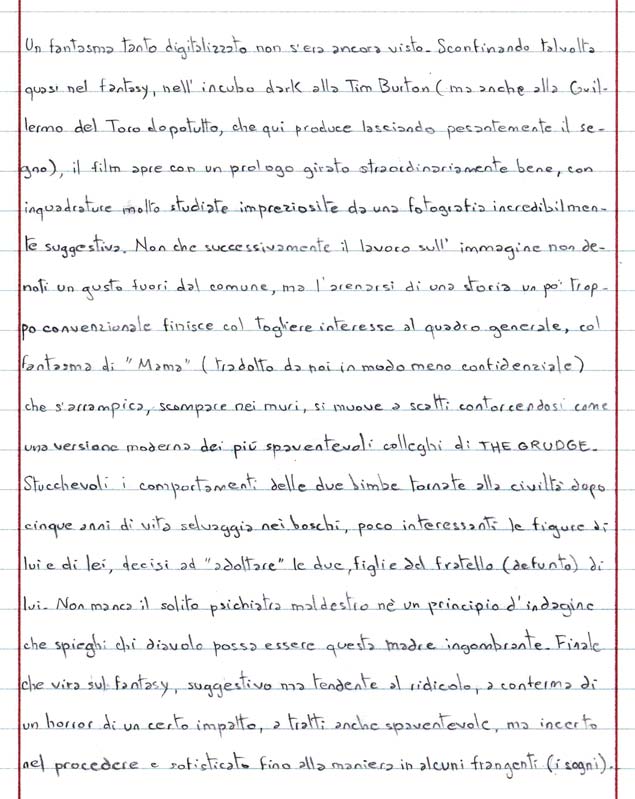 Un fantasma tanto digitalizzato non s'era ancora visto. Sconfinando talvolta
quasi nel fantasy, nell'incubo dark alla Tim Burton (ma anche alla Guil-
lermo del Toro dopotutto, che qui produce lasciando pesantemente il se-
gno), il film apre con un prologo girato straordinariamente bene, con
inquadrature molto studiate impreziosite da una fotografia incredibilmen-
te suggestiva. Non che successivamente il lavoro sull'immagine non de-
noti un gusto fuori dal comune, ma l'arenarsi di una storia un po' trop-
po convenzionale finisce col togliere interesse al quadro generale, col
fantasma di "Mama" (tradotto da noi in modo meno confidenziale)
che s'arrampica, scompare nei muri, si muove a scatti contorcendosi come
una versione moderna dei più spaventevoli colleghi di THE GRUDGE.
Stucchevoli i comportamenti delle due bimbe tornate alla civiltà dopo
cinque anni di vita selvaggia nei boschi, poco interessanti le figure di
lui e di lei, decisi ad "adottare" le due, figlie del fratello (defunto) di
lui. Non manca il solito psichiatra maldestro nè un principio d'indagine
che spieghi chi diavolo possa essere questa madre ingombrante. Finale
che vira sul fantasy, suggestivo ma tendente al ridicolo, a conferma di
un horror di un certo impatto, a tratti anche spaventevole, ma incerto
nel procedere e sofisticato fino alla maniera in alcuni frangenti (i sogni).